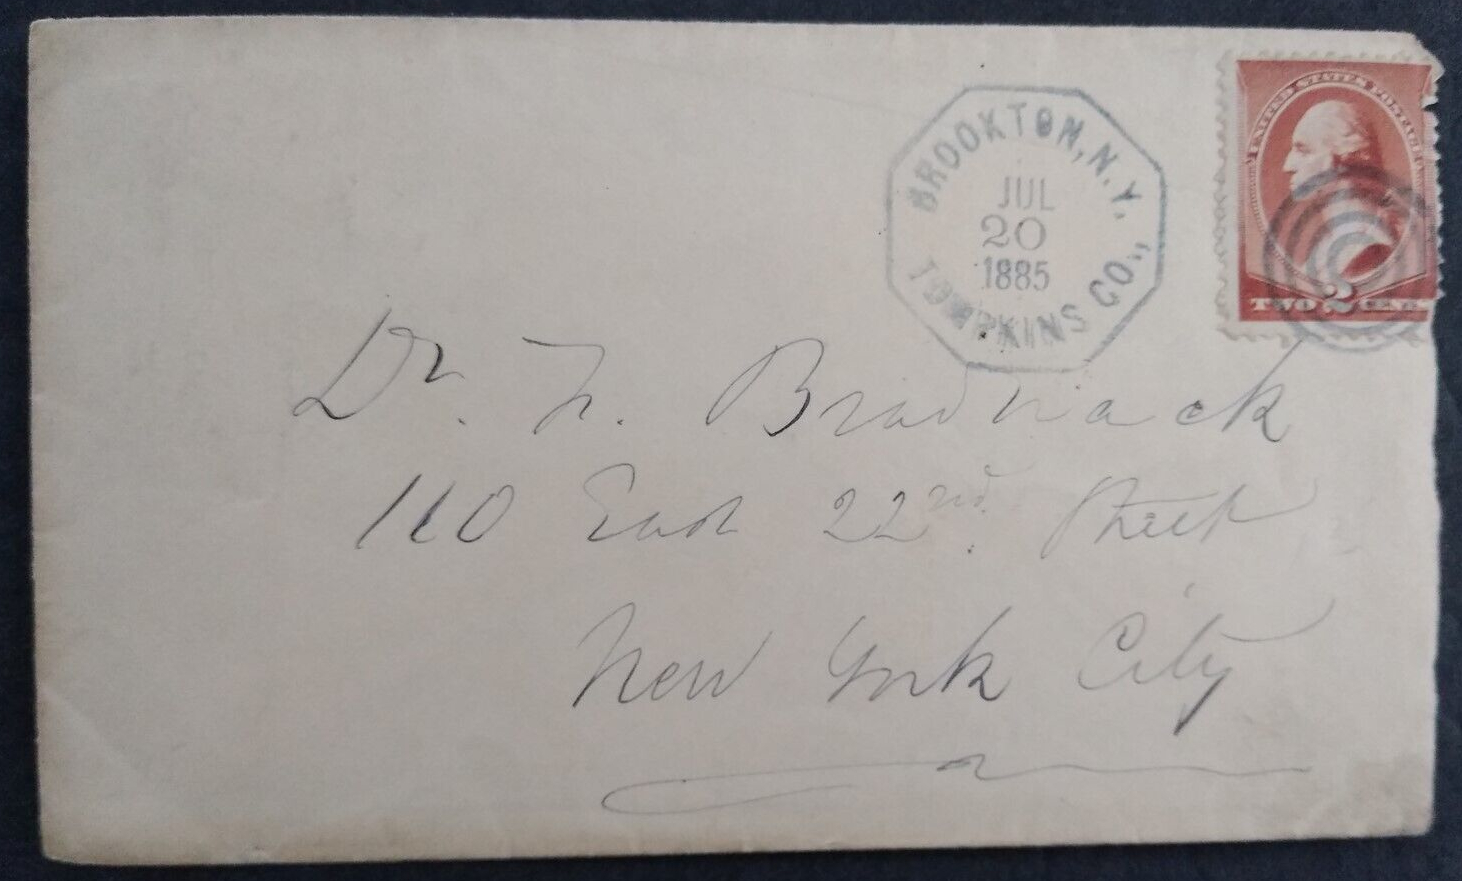 BROOKTON, N.Y.
JUL
20
1885
TOMPKINS CO.,
UNITED STATES POSTAGE
TWO 2 CENTS
Dr. F. Bradnack
110 East 22nd. Street
New York City